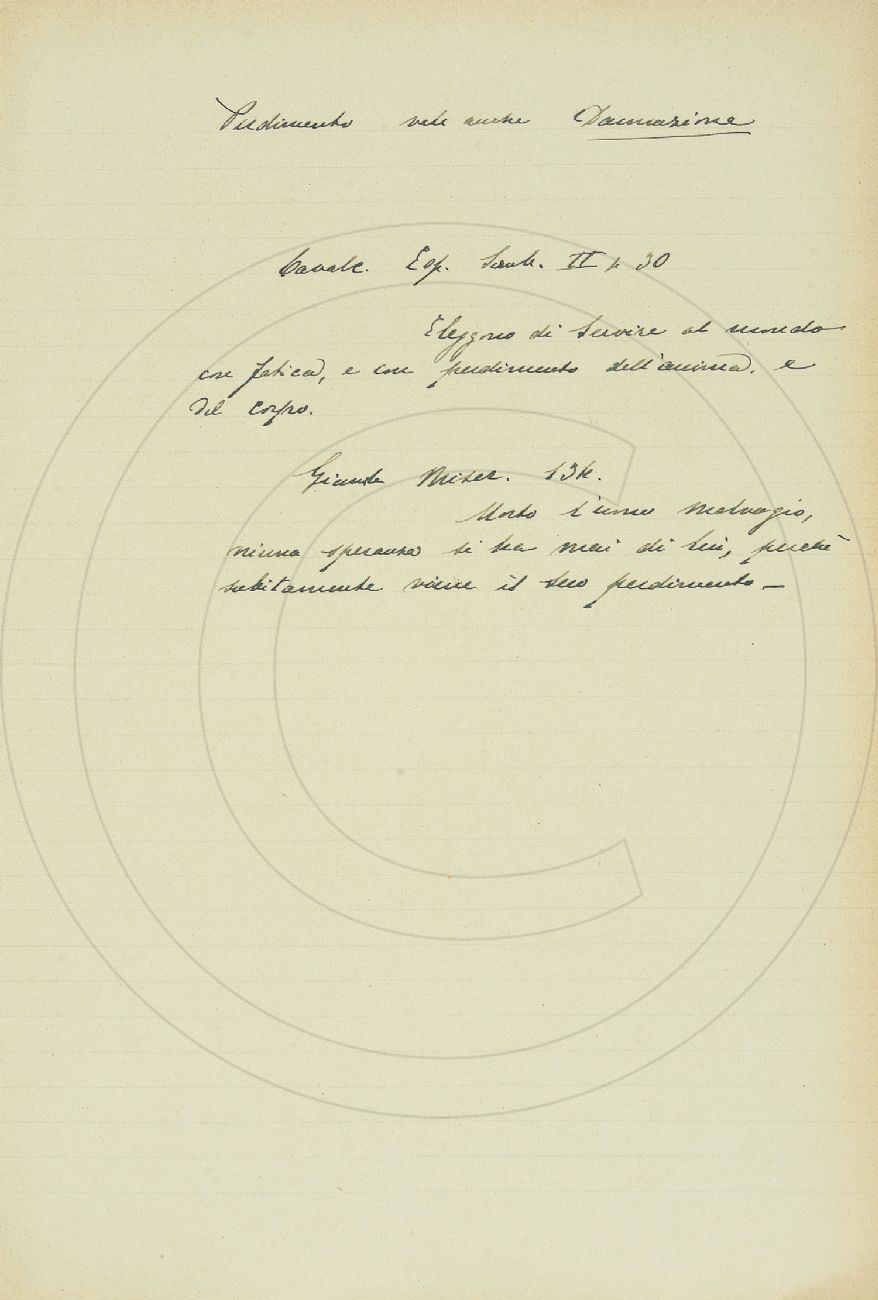 Perdimento vale anche Dannazione
Cavalc. Esp. Simb. II p 30
Eleggono di servire al mondo
con fatica, e con perdimento dell'anima, e
del corpo.
Giamb. Miser. 134.
Morto l'uomo malvagio,
niuna speranza si ha mai di lui, perchè
subitamente viene il suo perdimento –